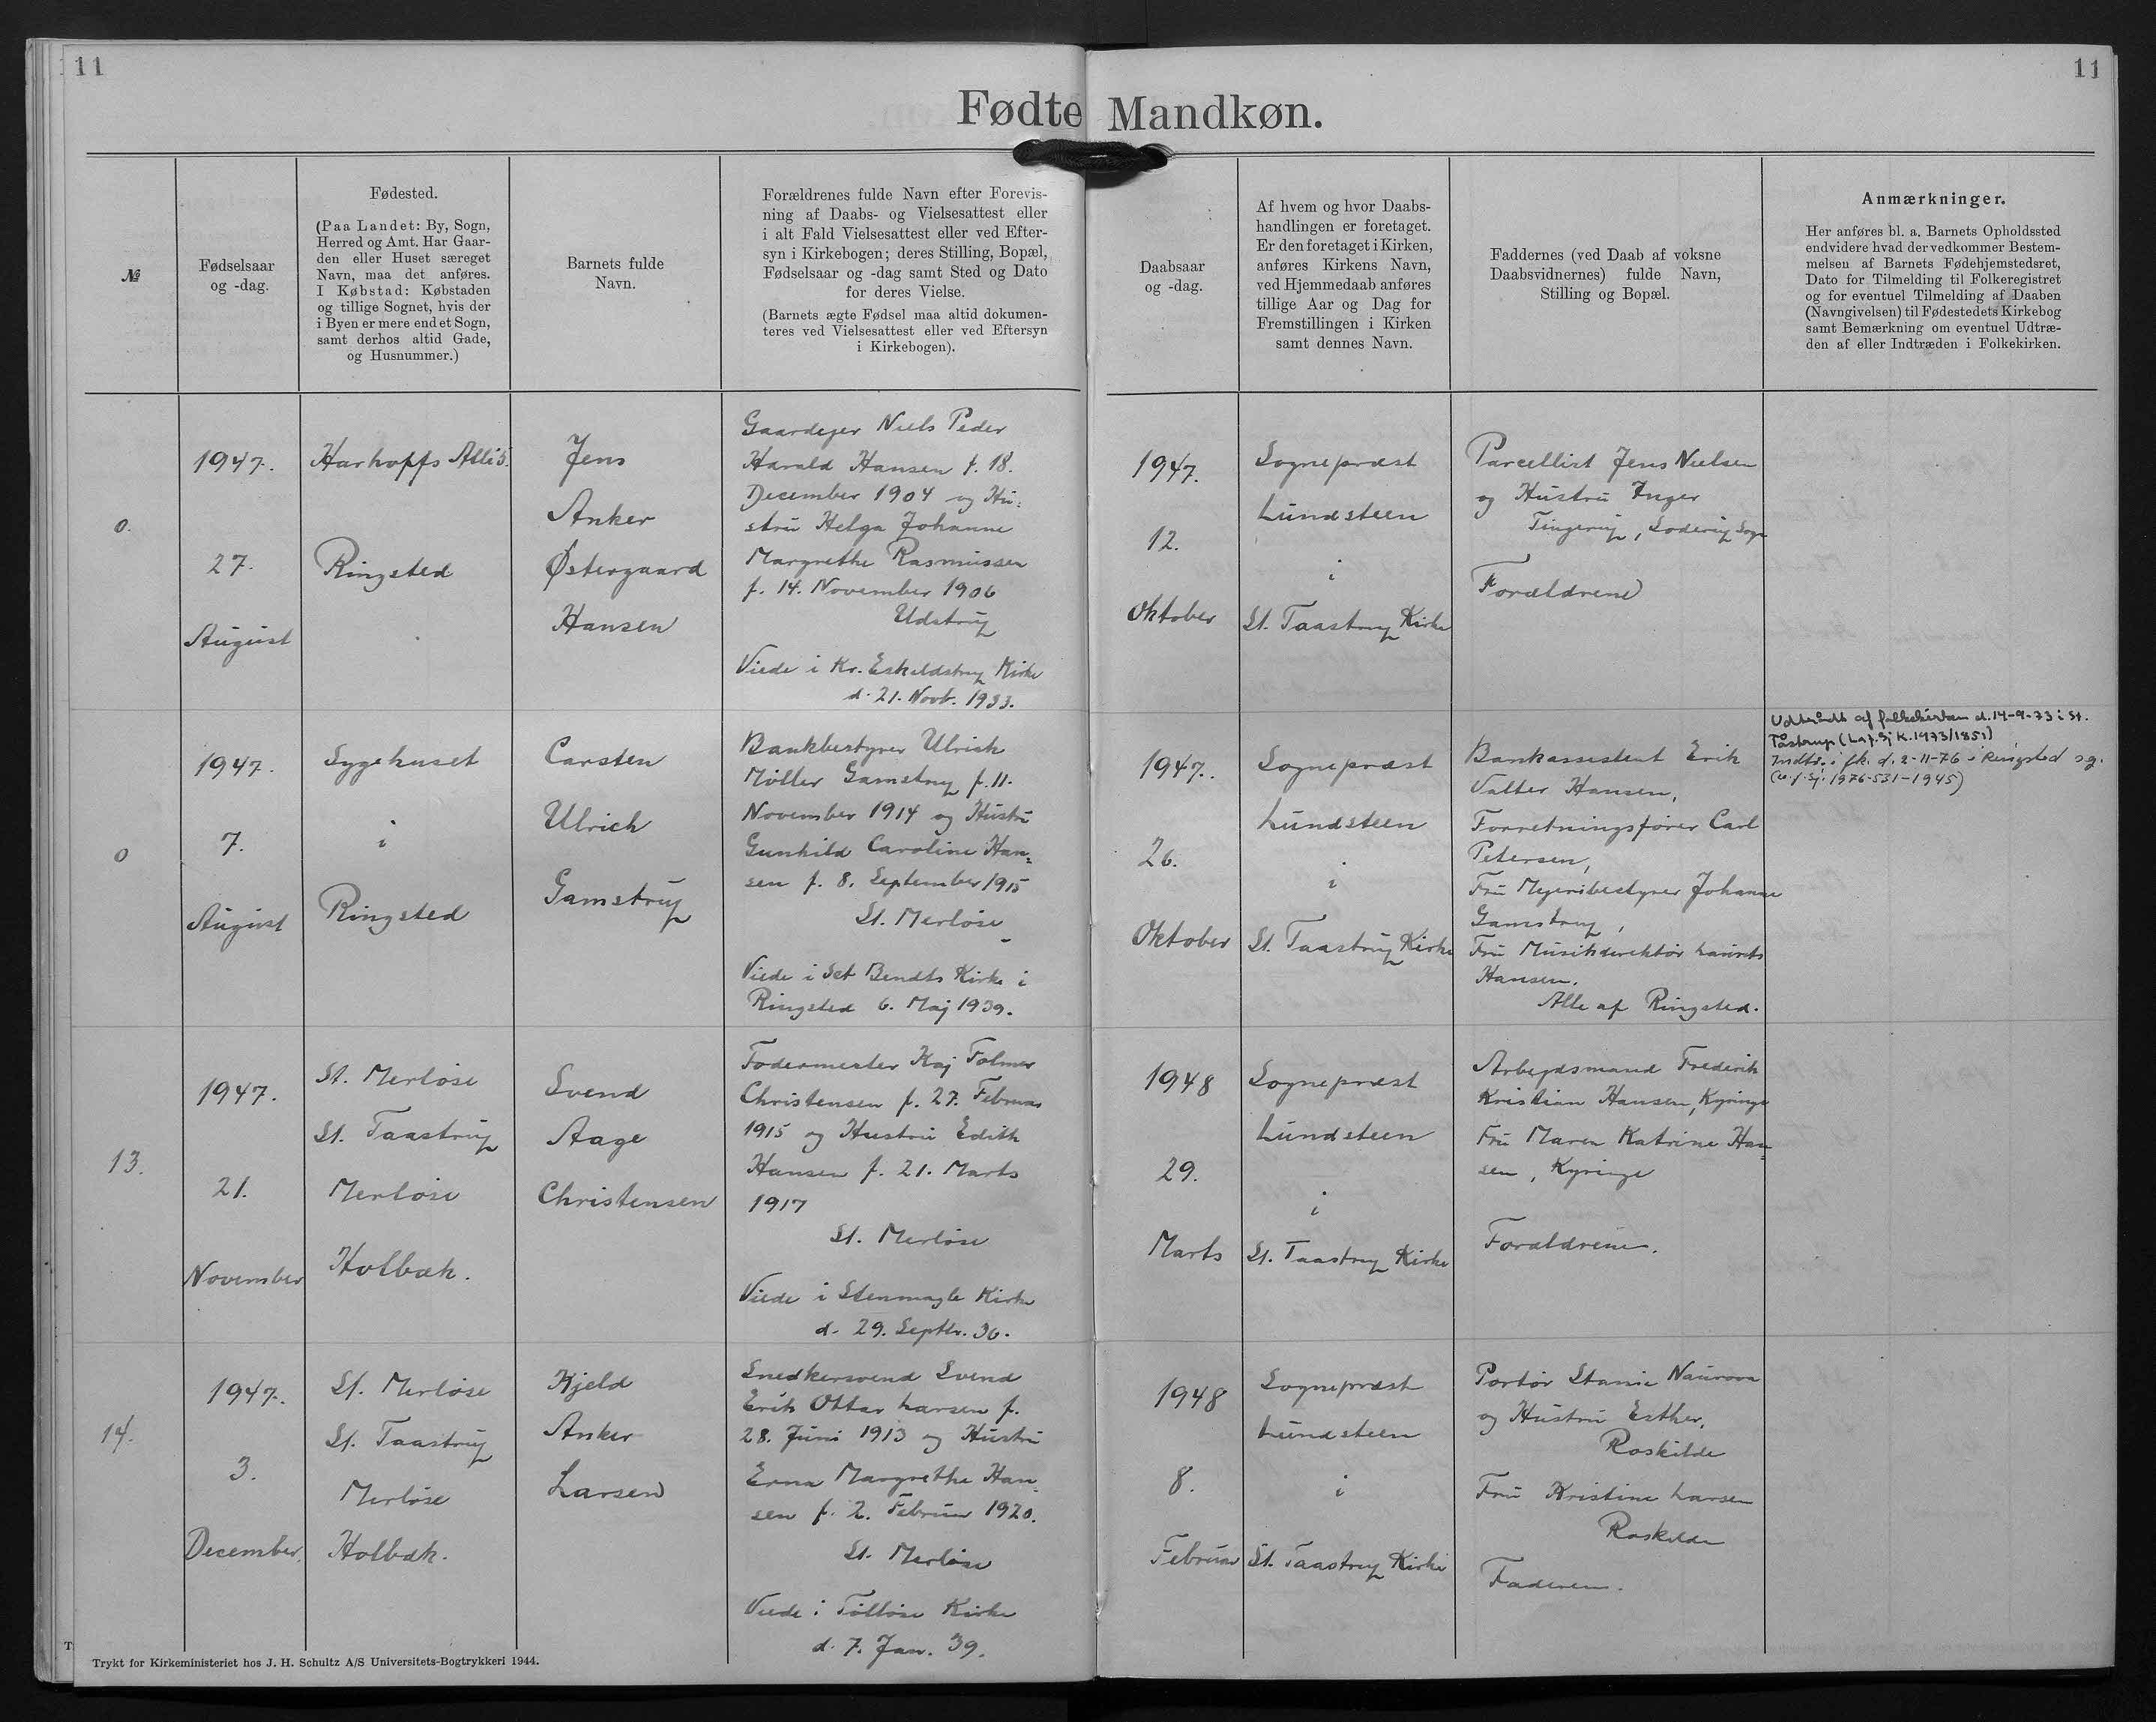 11
11
Fødte Mandkøn.
№
Fødselsaar
og -dag.
Fødested.
(Paa Landet: By, Sogn,
Herred og Amt. Har Gaar-
den eller Huset særeget
Navn, maa det anføres.
I Købstad: Købstaden
og tillige Sognet, hvis der
i Byen er mere end et Sogn,
samt derhos altid Gade,
og Husnummer.)
Barnets fulde
Navn.
Forældrenes fulde Navn efter Forevis-
ning af Daabs- og Vielsesattest eller
i alt Fald Vielsesattest eller ved Efter-
syn i Kirkebogen; deres Stilling, Bopæl,
Fødselsaar og -dag samt Sted og Dato
for deres Vielse.
(Barnets ægte Fødsel maa altid dokumen-
teres ved Vielsesattest eller ved Eftersyn
i Kirkebogen).
Daabsaar
og -dag.
Af hvem og hvor Daabs-
handlingen er foretaget.
Er den foretaget i Kirken,
anføres Kirkens Navn,
ved Hjemmedaab anføres
tillige Aar og Dag for
Fremstillingen i Kirken
samt dennes Navn.
Faddernes (ved Daab af voksne
Daabsvidnernes) fulde Navn,
Stilling og Bopæl.
Anmærkninger.
Her anføres bl. a. Barnets Opholdssted
endvidere hvad der vedkommer Bestem-
melsen af Barnets Fødehjemstedsret,
Dato for Tilmelding til Folkeregistret
og for eventuel Tilmelding af Daaben
(Navngivelsen) til Fødestedets Kirkebog
samt Bemærkning om eventuel Udtræ-
den af eller Indtræden i Folkekirken.
0.
1947.
27.
August
Harhoffs Allé 5.
Ringsted
Jens
Anker
Østergaard
Hansen
Gaardejer Niels Peder
Harald Hansen f. 18.
December 1904 og Hu-
stru Helga Johanne
Margrethe Rasmussen
f. 14. November 1906
Udstrup
Viede i Kr. Eskildstrup Kirke
d. 21. Novb. 1933.
1947.
12.
Oktober
Sognepræst
Lundsteen
i
St. Taastrup Kirke
Parcellist Jens Nielsen
og Hustru Inger
Tingerup, Soderup Sogn
Forældrene
0
1947.
7.
August
Sygehuset
i
Ringsted
Carsten
Ulrich
Gamstrup
Bankbestyrer Ulrich
Møller Gamstrup f. 11.
November 1914 og Hustru
Gunhild Caroline Han-
sen f. 8. September 1915
St. Merløse
Viede i Sct Bendts Kirke i
Ringsted 6. Maj 1939.
1947.
26.
Oktober
Sognepræst
Lundsteen
i
St. Taastrup Kirke
Bankassistent Erik
Valter Hansen,
Forretningsfører Carl
Petersen,
Fru Mejeribestyrer Johanne
Gamstrup,
Fru Musikdirektør Laurits
Hansen.
Alle af Ringsted.
Udtrådt af folkekirken d. 14-9-73 i St.
Tåstrup (La f. Sj K. 1973/1851)
Indtr. i fk. d. 2-11-76 i Ringsted sg.
(La. f. Sj. 1976-531-1945)
13.
1947.
21.
November
St. Merløse
St. Taastrup
Merløse
Holbæk.
Svend
Aage
Christensen
Fodermester Kaj Folmer
Christensen f. 27. Februar
1915 og Hustru Edith
Hansen f. 21. Marts
1917
St. Merløse
Viede i Stenmagle Kirke
d. 29. Septbr. 36.
1948
29.
Marts
Sognepræst
Lundsteen
i
St. Taastrup Kirke
Arbejdsmand Frederik
Kristian Hansen, Kyringe
Fru Maren Katrine Han-
sen, Kyringe
Forældrene.
14.
1947.
3.
December
St. Merløse
St. Taastrup
Merløse
Holbæk.
Kjeld
Anker
Larsen
Snedkersvend Svend
Erik Ottar Larsen f.
28. Juni 1913 og Hustru
Erna Margrethe Han-
sen f. 2. Februar 1920.
St. Merløse
Viede i Tølløse Kirke
d. 7. Jan. 39.
1948
8.
Februar
Sognepræst
Lundsteen
i
St. Taastrup Kirke
Portør
og Hustru Esther,
Roskilde
Fru Kristine Larsen
Roskilde
Faderen.
T
Trykt for Kirkeministeriet hos J. H. Schultz A/S Universitets-Bogtrykkeri 1944.